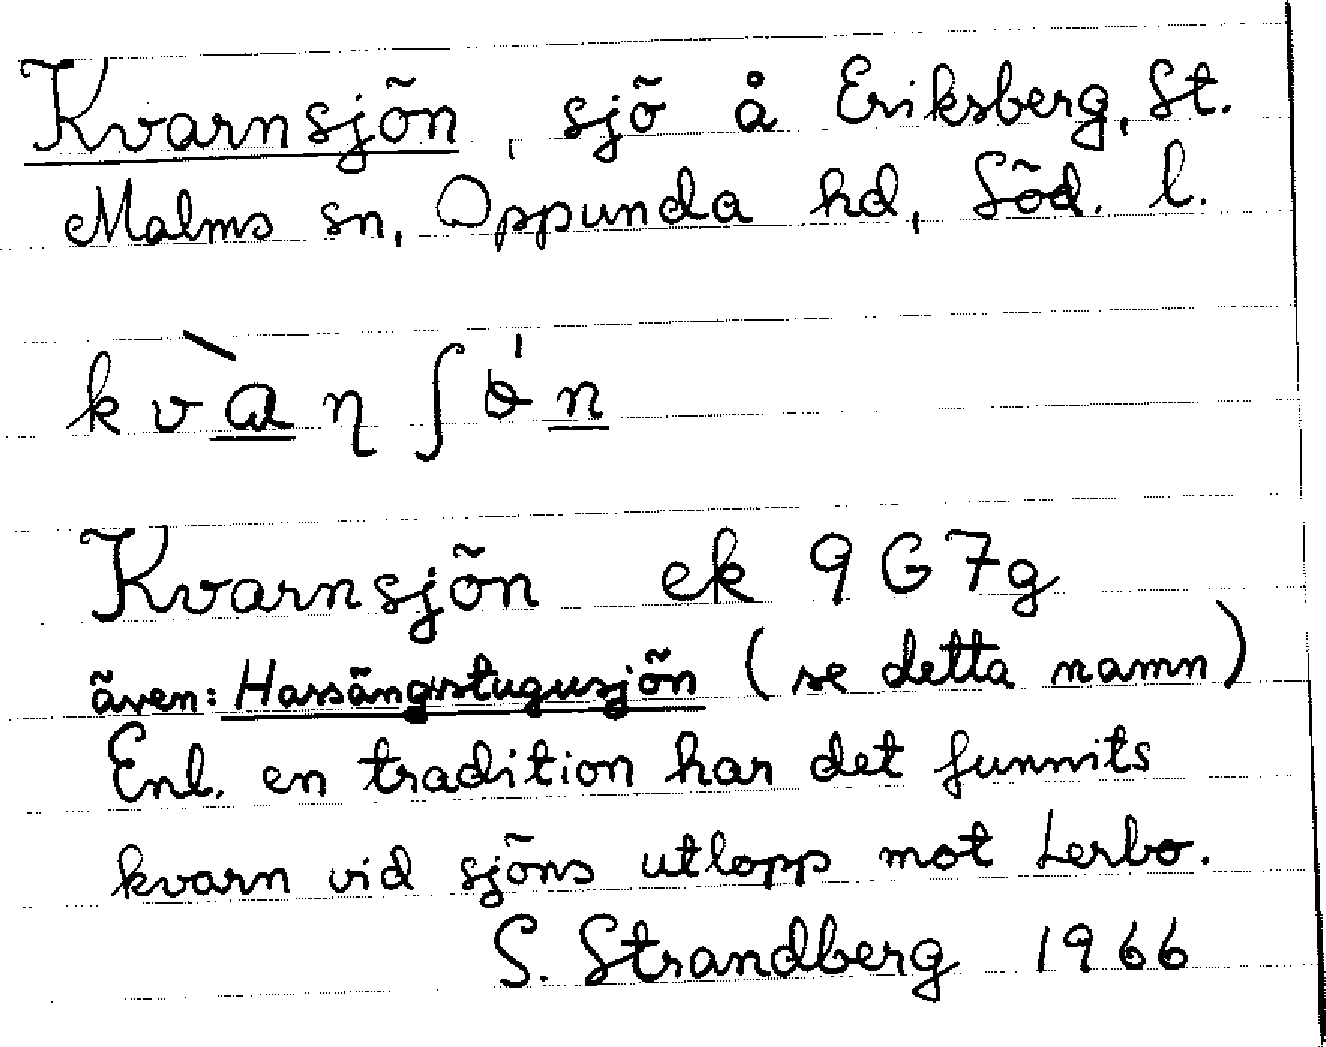 Kvarnsjön, sjö å Eriksberg, St.
Malms sn, Oppunda hd, Söd. l.
Kvarnsjön ek 9G7g
även: Harsängstugusjön (se detta namn)
Enl. en tradition har det funnits
kvarn vid sjöns utlopp mot Lerbo.
S. Strandberg 1966